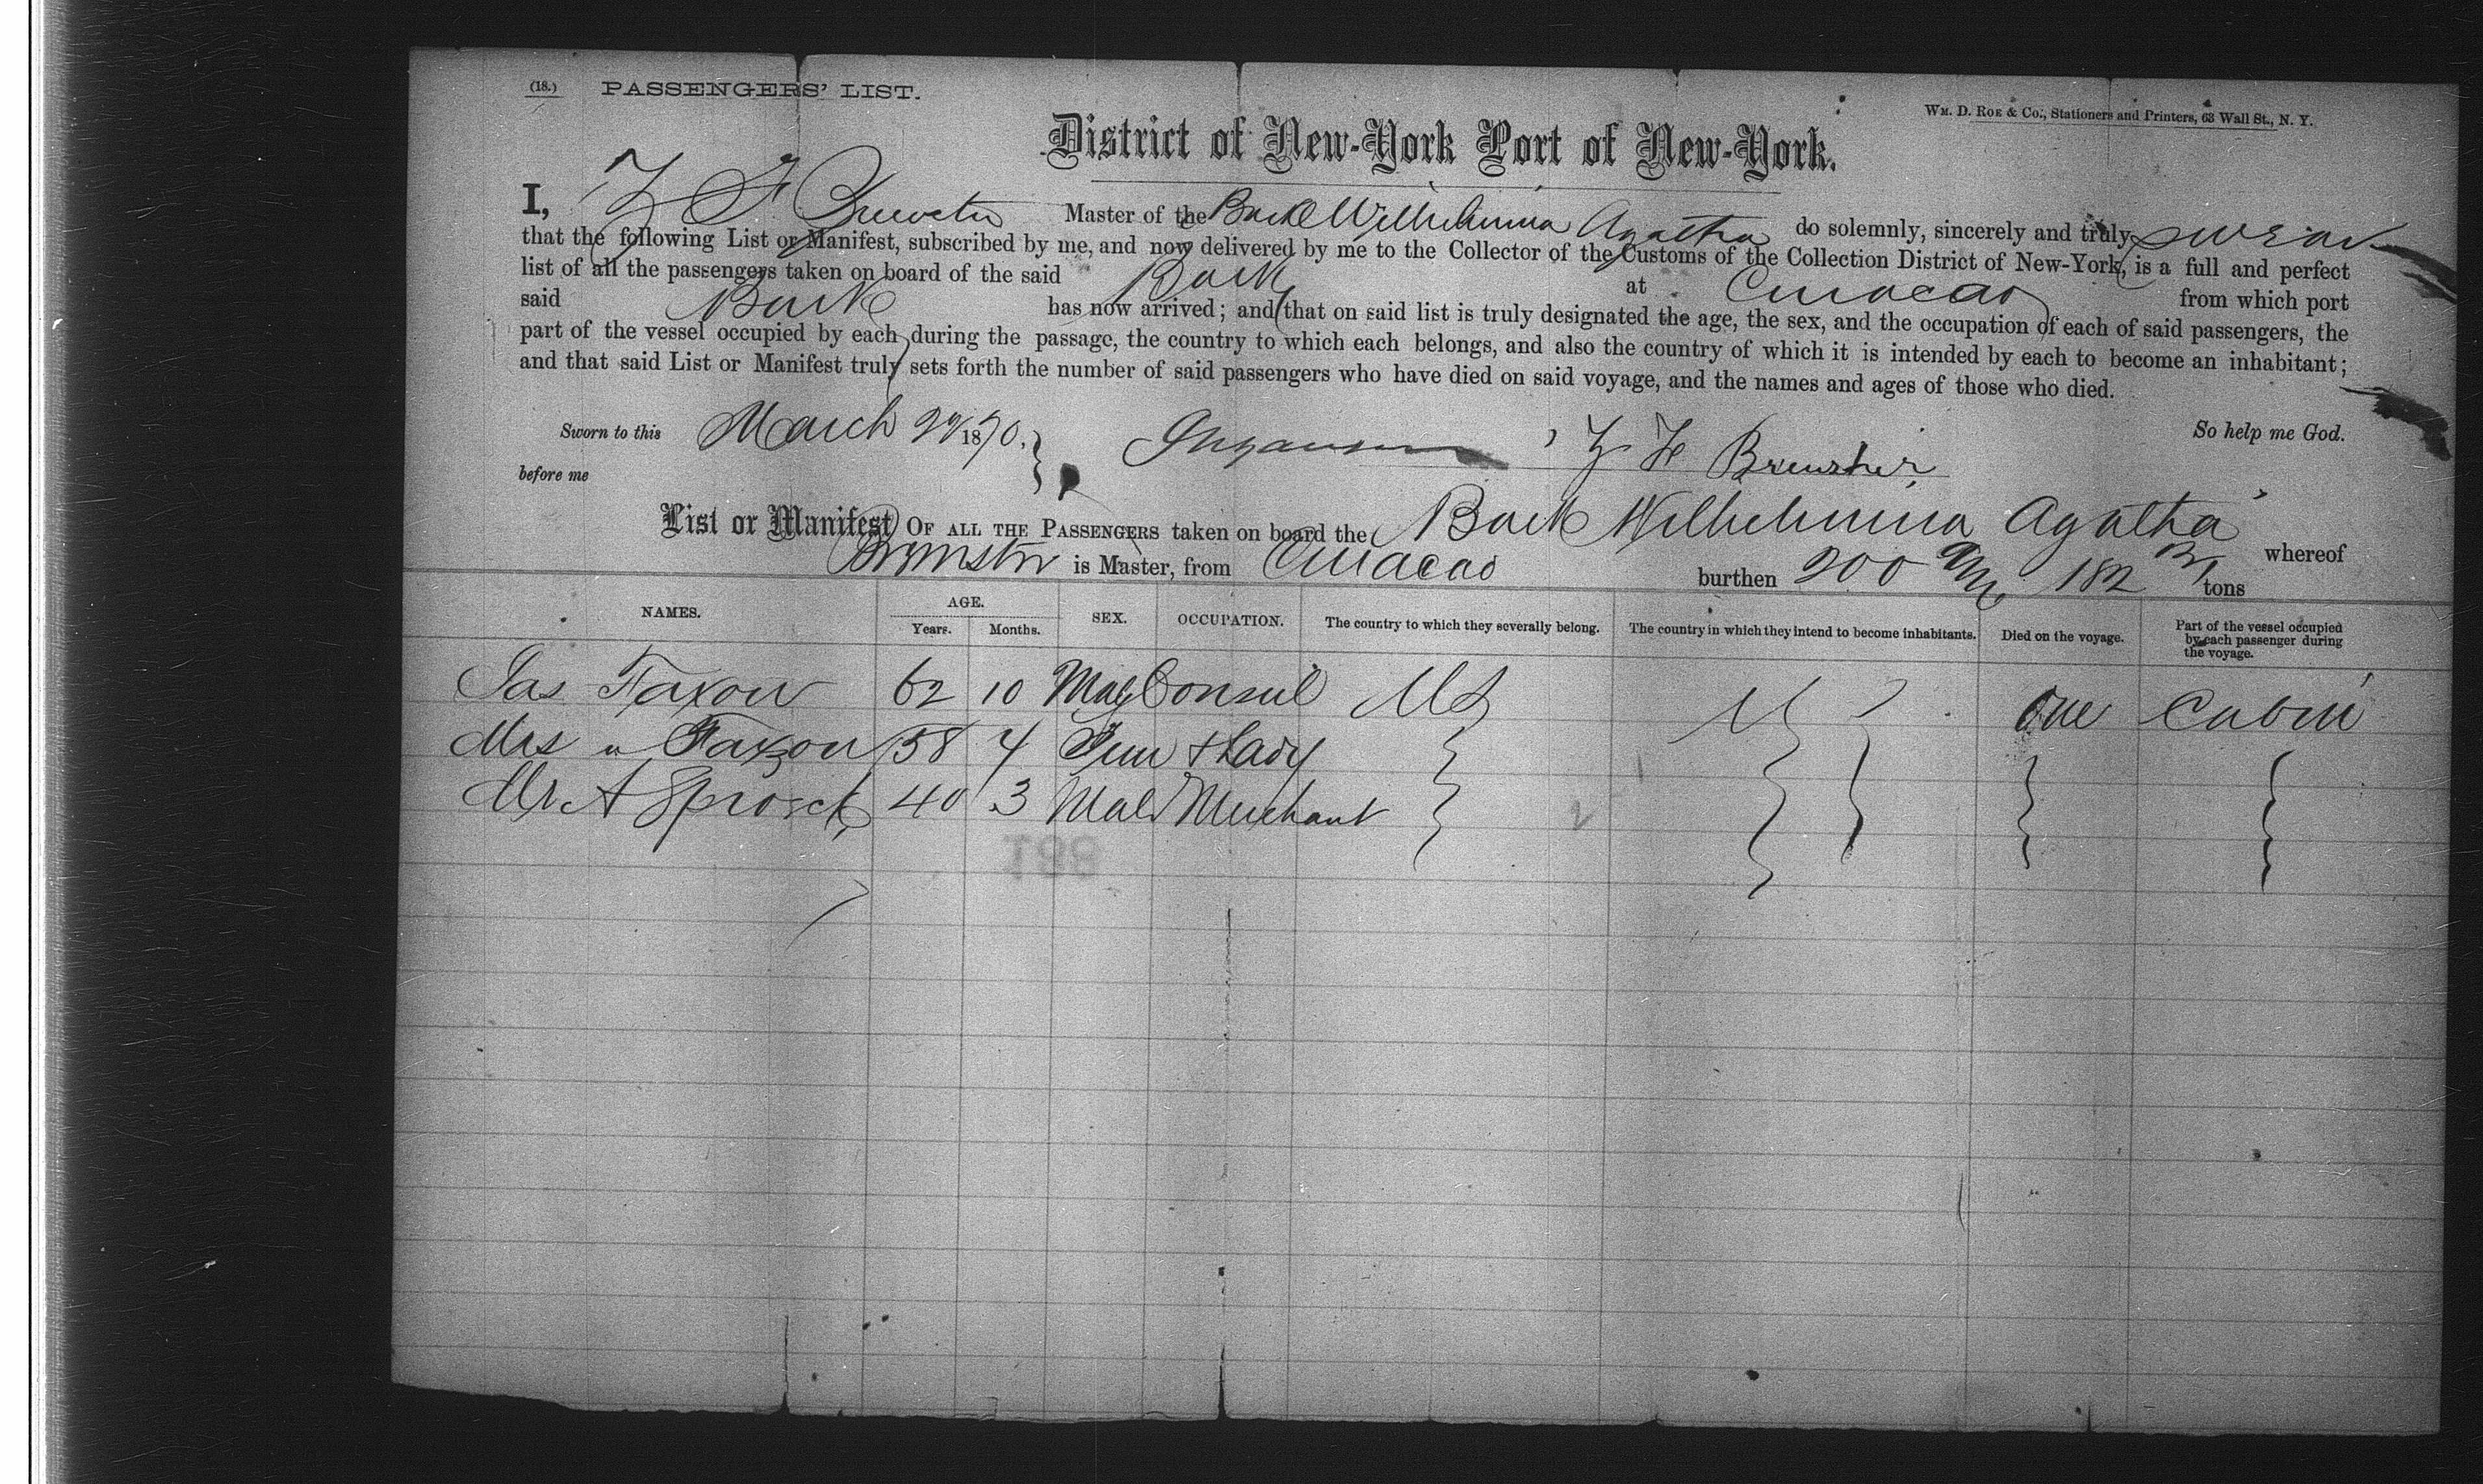 (18.) PASSENGERS' LIST.
Wm. D. Roe & Co., Stationers and Printers, 63 Wall St., N. Y.
District of New-York Port of New-York.
I, Z F Brewster Master of the Bark Wilhelmina Agatha do solemnly, sincerely and truly swear
that the following List or Manifest, subscribed by me, and now delivered by me to the Collector of the Customs of the Collection District of New-York, is a full and perfect
list of all the passengers taken on board of the said Bark at Curacao from which port
said Bark has now arrived; and that on said list is truly designated the age, the sex, and the occupation of each of said passengers, the
part of the vessel occupied by each during the passage, the country to which each belongs, and also the country of which it is intended by each to become an inhabitant;
and that said List or Manifest truly sets forth the number of said passengers who have died on said voyage, and the names and ages of those who died.
Sworn to this March 1870. Z F Brewster So help me God.
before me
List or Manifest OF ALL THE PASSENGERS taken on board the Bark Wilhelmina Agatha whereof
Brewster is Master, from Curacao burthen 200 182 tons
NAMES. AGE. Years. Months. SEX. OCCUPATION. The country to which they severally belong. The country in which they intend to become inhabitants. Died on the voyage. Part of the vessel occupied by each passenger during the voyage.
Jas Faxon 62 10 Male Consul US US One Cabin
Mrs " Faxon 58 4 Fem + Lady
Mr A 40 3 Male Merchant